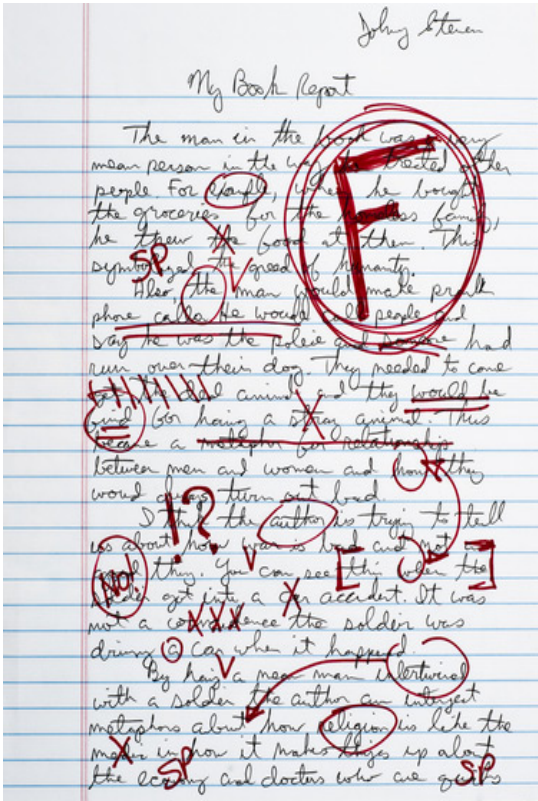 Johny Steven
My Book Report
The man in the book was a very
mean person in the way he treated other
people. For , when he bought
the groceries for the homeless family,
he threw the food at them. This
SP
symbolized the greed of humanity.
Also the man would make prank
phone calls. He would call people and
say he was the police and someone had
run over their dog. They needed to come
get the dead animal and they would be
for having a stray animal. Thus
became a metaphor for relationships
between men and women and how they
would always turn out bad.
I think the author is trying to tell
us about how war is bad and not a
good thing. You can see this when the
soldier got into a car accident. It was
not a the soldier was
driving a car when it happened.
By having a mean man intertwined
with a soldier the author can
metaphors about how religion is like the
in how it makes things up about
the economy and doctors who are
F
!?
NO!
SP
SP